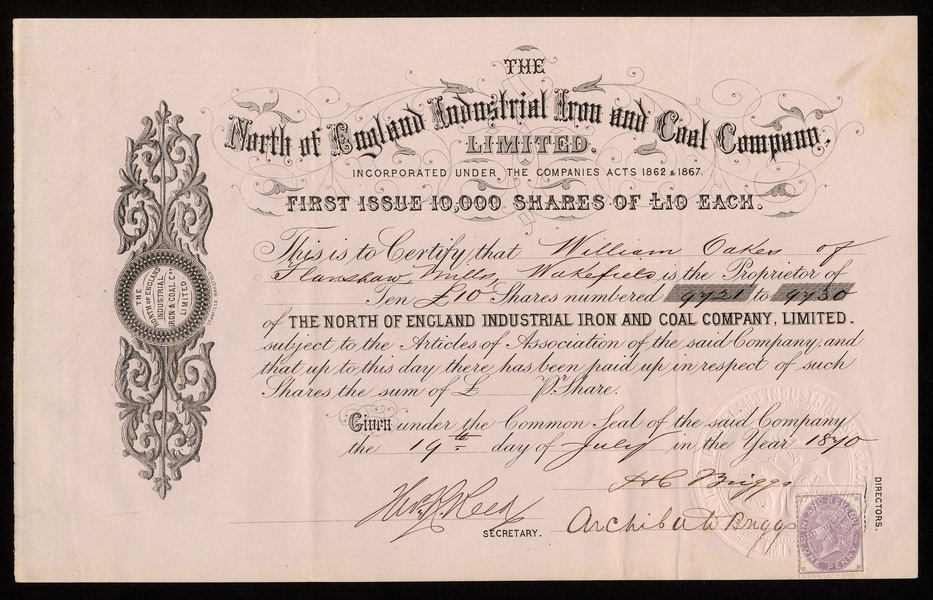 THE
North of England Industrial Iron and Coal Company,
LIMITED.
INCORPORATED UNDER THE COMPANIES ACTS 1862 & 1867.
FIRST ISSUE 10,000 SHARES OF £10 EACH.
This is to Certify that William Oakes of
Flanshaw Mills, Wakefield, is the Proprietor of
Ten £10 Shares numbered 9721 to 9730
of THE NORTH OF ENGLAND INDUSTRIAL IRON AND COAL COMPANY, LIMITED.
subject to the Articles of Association of the said Company, and
that up to this day there has been paid up in respect of such
Shares, the sum of £ Pr. Share.
Given under the Common Seal of the said Company
the 19th day of July in the Year 1870
H C Briggs
Archibald Briggs
DIRECTORS.
SECRETARY.
THE
NORTH OF ENGLAND
INDUSTRIAL
IRON & COAL Coy
LIMITED
INLAND REVENUE
ONE PENNY